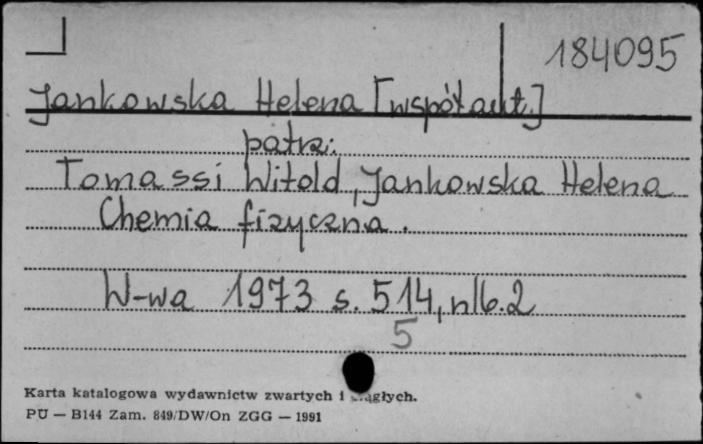 184095
Jankowska Helena [współaut.]
patrz:
Tomassi Witold, Jankowska Helena
Chemia fizyczna.
W-wa 1973 s. 514, nlb. 2
5
Karta katalogowa wydawnictw zwartych i ciągłych.
PU — B144 Zam. 849/DW/On ZGG — 1991